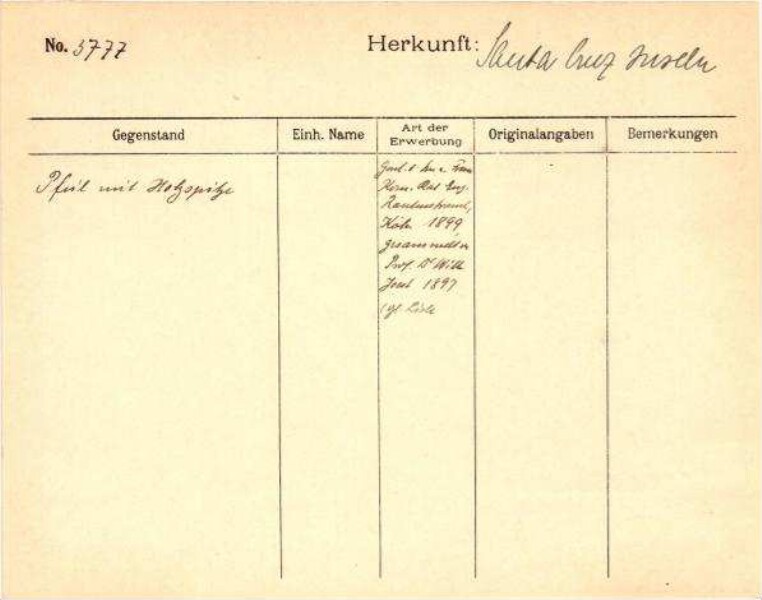 No. 3777
Herkunft: Santa Cruz Inseln
Gegenstand
Einh. Name
Art der Erwerbung
Originalangaben
Bemerkungen
Pfeil mit Holzspitze
Gesch. v. Frau
Kom. Rat Eug.
Rautenstrauch,
Köln 1899
gesammelt v.
Prof. Dr Wilh.
Joest 1897